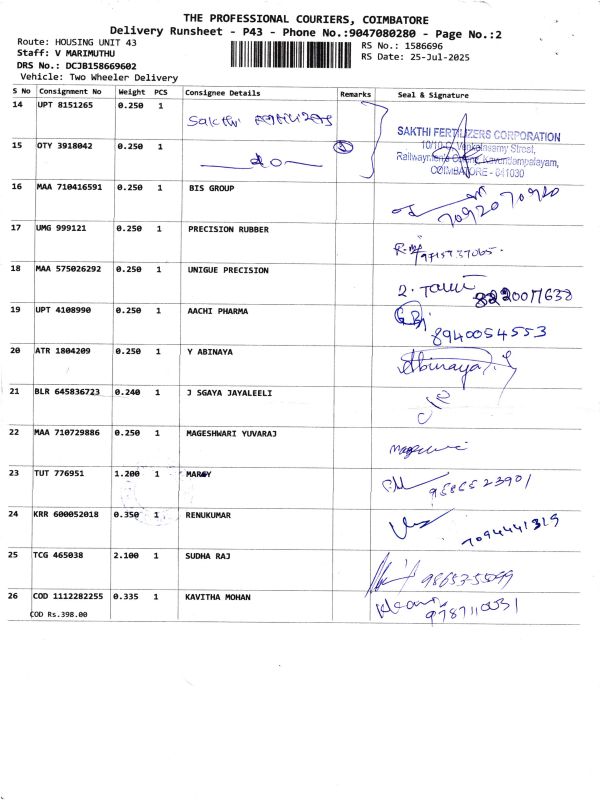 THE PROFESSIONAL COURIERS, COIMBATORE
Delivery Runsheet - P43 - Phone No.:9047080280 - Page No.:2
Route: HOUSING UNIT 43
RS No.: 1586696
Staff: V MARIMUTHU
RS Date: 25-Jul-2025
DRS No.: DCJB158669602
Vehicle: Two Wheeler Delivery
S No Consignment No Weight PCS Consignee Details Remarks Seal & Signature
14 UPT 8151265 0.250 1 Sakthi
15 OTY 3918042 0.250 1 do
SAKTHI FERTILIZERS CORPORATION
Street,
Kavundampalayam,
COIMBATORE - 641030
16 MAA 710416591 0.250 1 BIS GROUP 7092070920
17 UMG 999121 0.250 1 PRECISION RUBBER
18 MAA 575026292 0.250 1 UNIGUE PRECISION 8220017638
19 UPT 4108990 0.250 1 AACHI PHARMA 8940054553
20 ATR 1804209 0.250 1 Y ABINAYA Abinaya
21 BLR 645836723 0.240 1 J SGAYA JAYALEELI
22 MAA 710729886 0.250 1 MAGESHWARI YUVARAJ
23 TUT 776951 1.200 1 MARY 9586523901
24 KRR 600052018 0.350 1 RENUKUMAR 7094441319
25 TCG 465038 2.100 1 SUDHA RAJ
26 COD 1112282255 0.335 1 KAVITHA MOHAN 9787110031
COD Rs.398.00